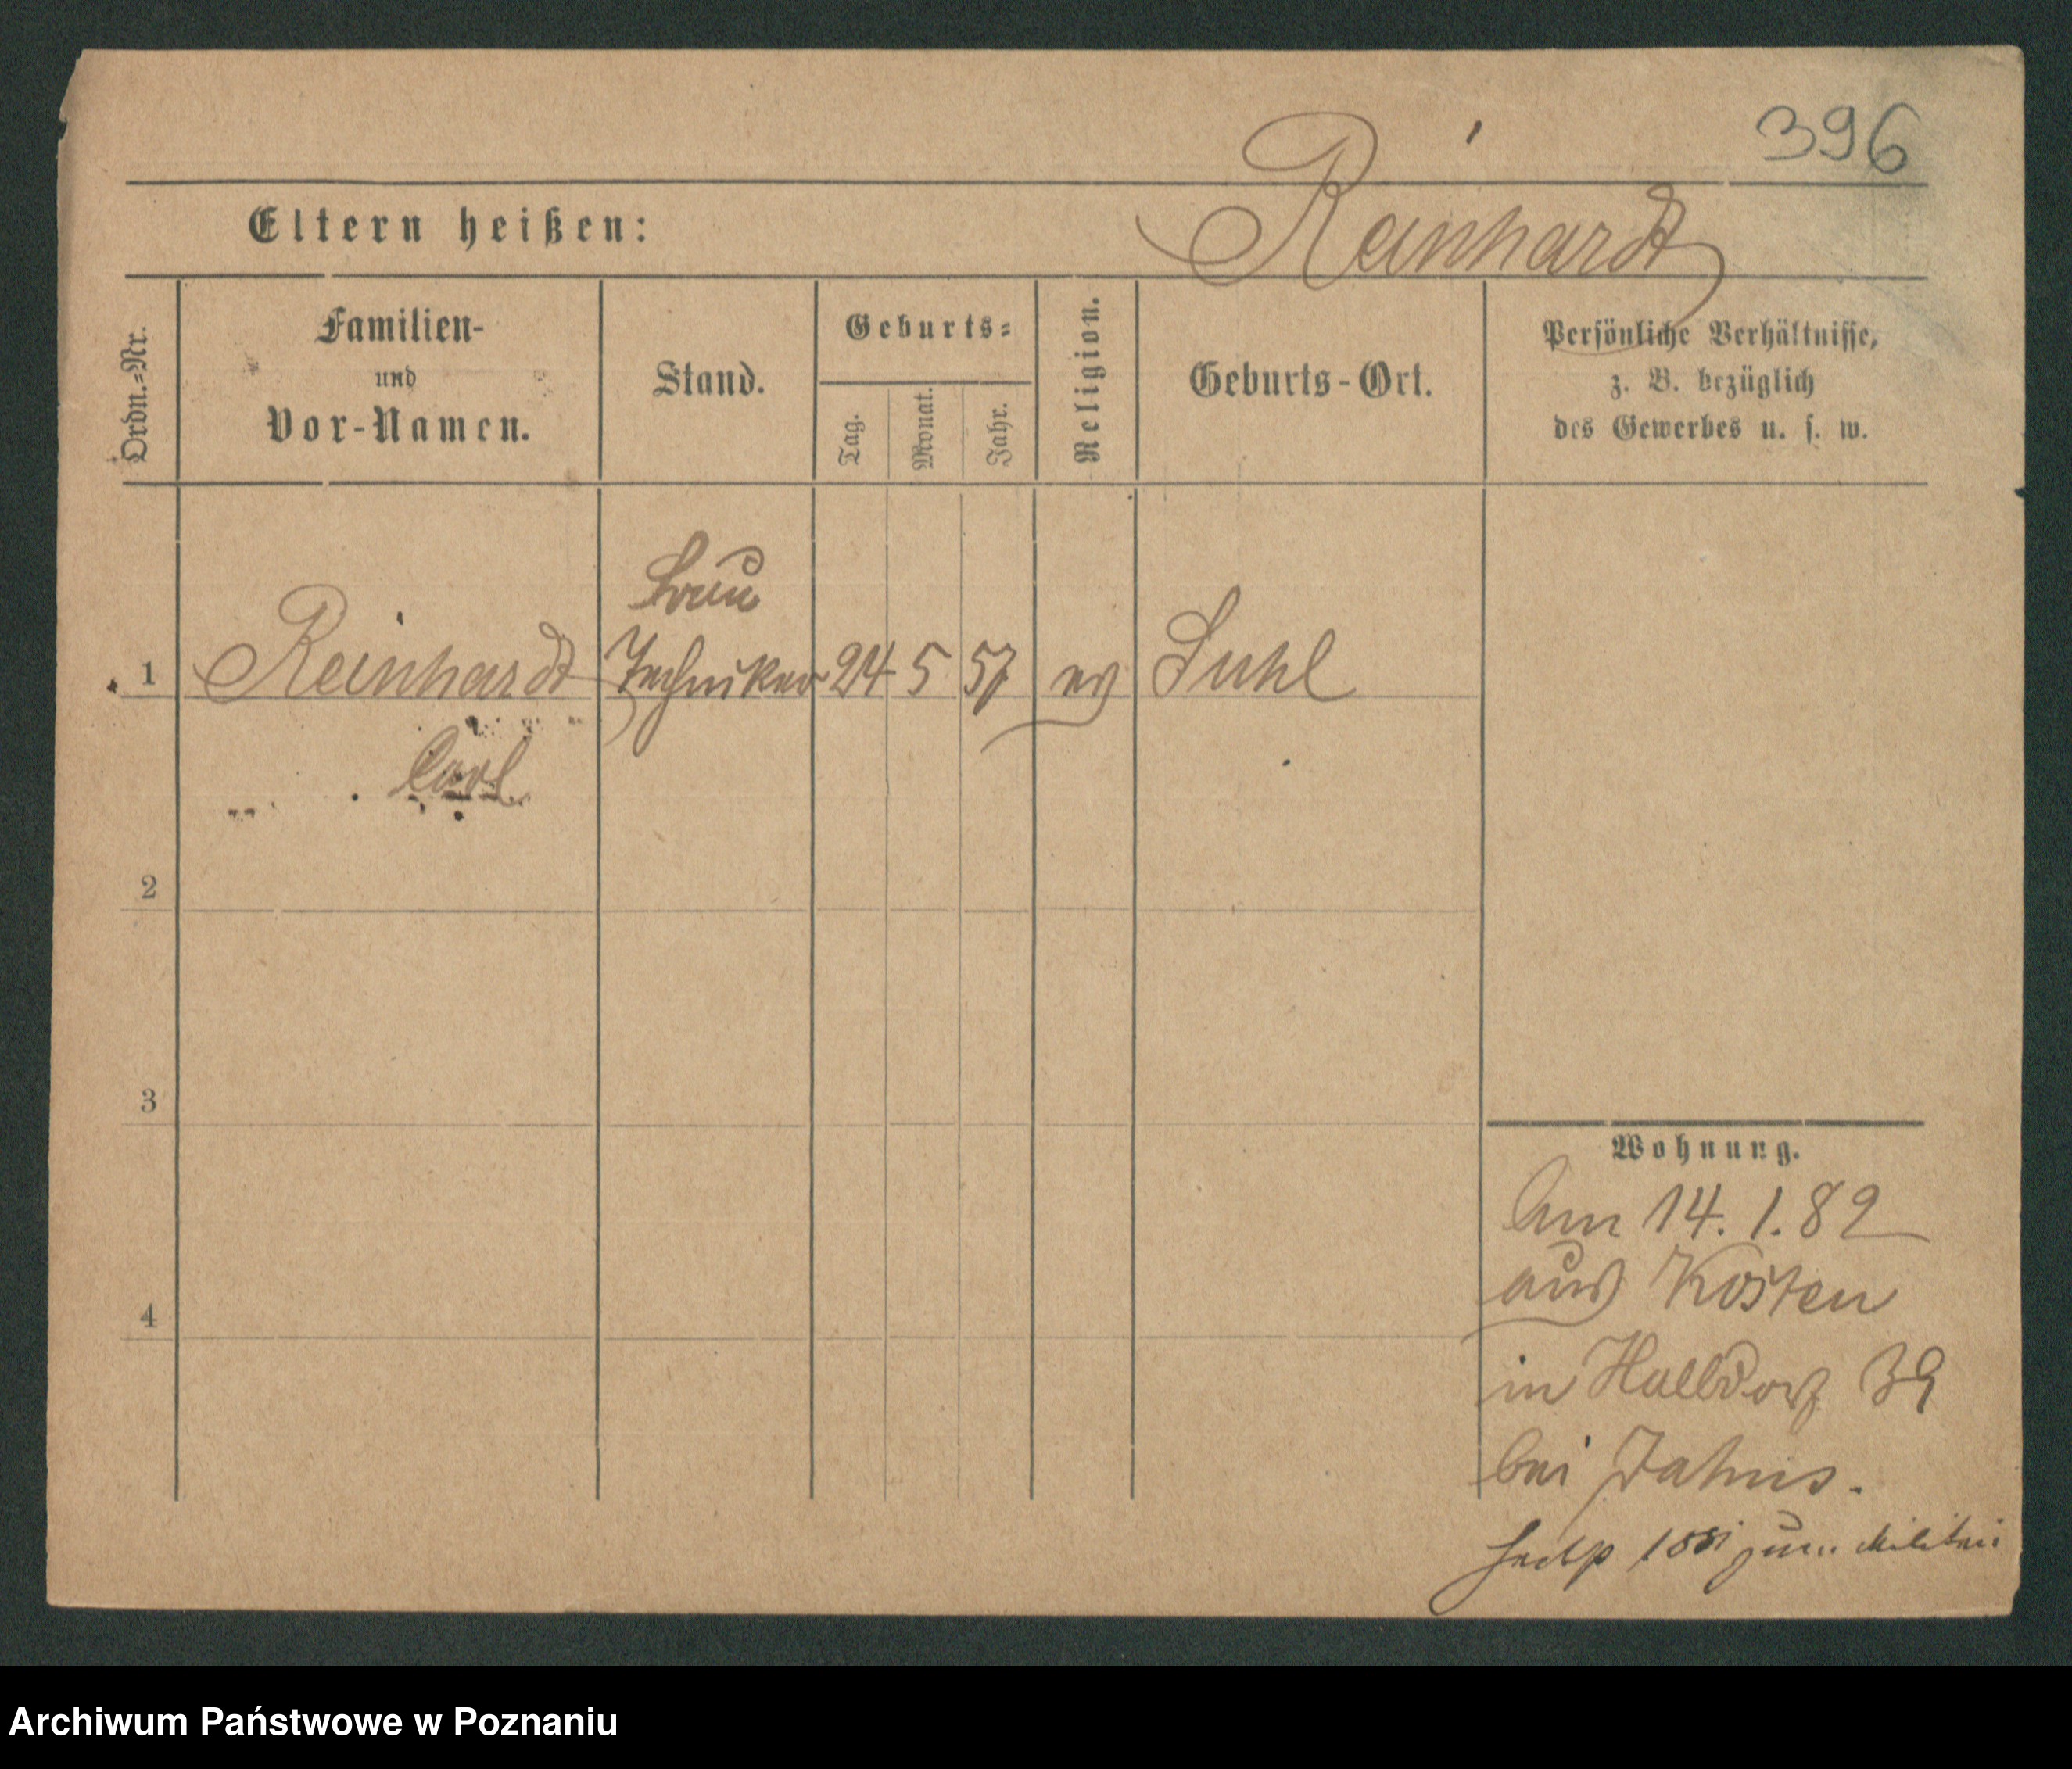 396
Reinhardt
Eltern heißen:
Ordn.-Nr.
Familien-
und
Vor-Namen.
Stand.
Geburts-
Tag.
Monat.
Jahr.
Religion.
Geburts-Ort.
Persönliche Verhältnisse,
z. B. bezüglich
des Gewerbes u. s. w.
Bau
1 Reinhardt Techniker 24 5 57 ev Suhl
Carl
2
3
4
Wohnung.
Am 14. 1. 82
aus Kosten
in Halbdorf 39
bei Jahns.
zum Militair
Archiwum Państwowe w Poznaniu